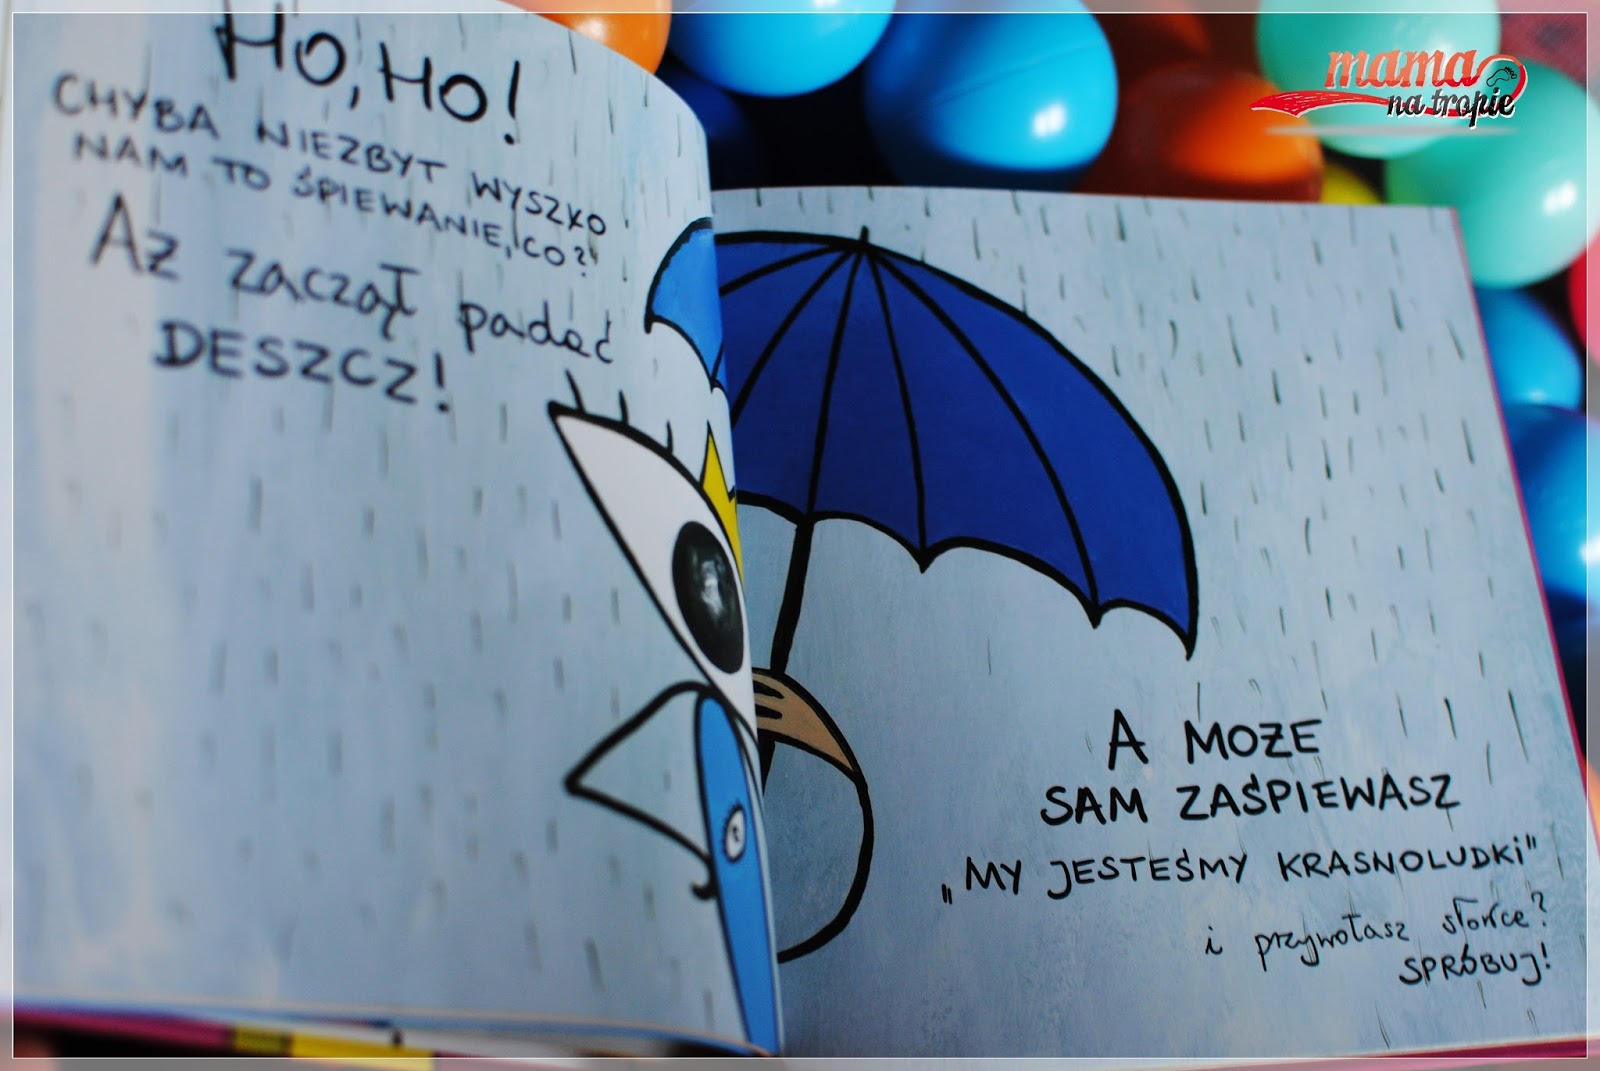 HO, HO!
CHYBA NIEZBYT WYSZKO
NAM TO ŚPIEWANIE, CO?"
Aż zaczął padać
DESZCZ!
A MOŻE
SAM ZAŚPIEWASZ
„MY JESTEŚMY KRASNOLUDKI"
i przywołasz słońce?
SPRÓBUJ!
mama
na tropie